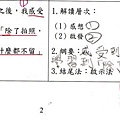 之後，我感受
「除了拍照，
什麼都不留」
1.解讀層次：
(1)感想
(2)啟發
2.綱要：感受到
學習到
3.結尾法：啟示法
2